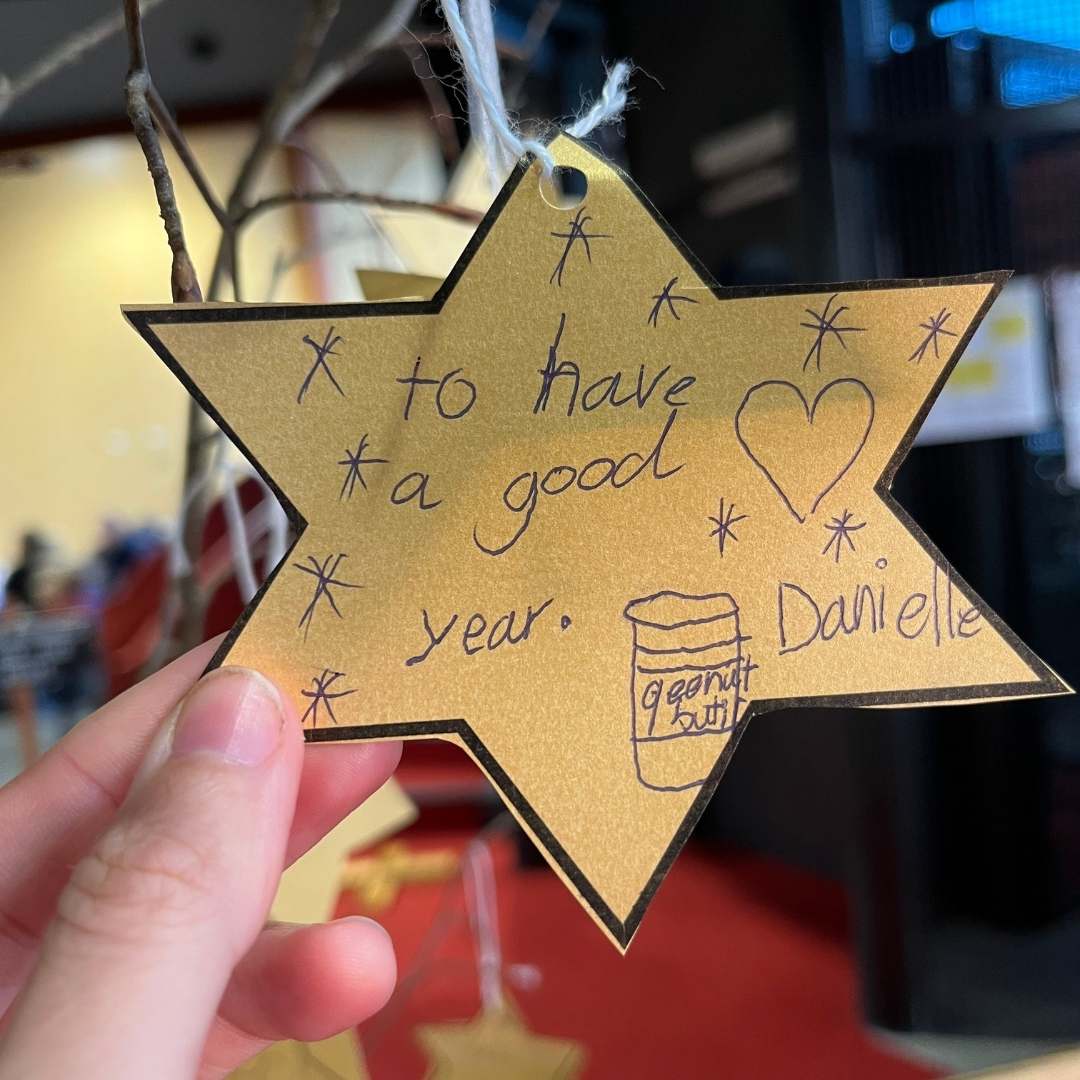 to have
a good
year.
Danielle
qeenutt
butir